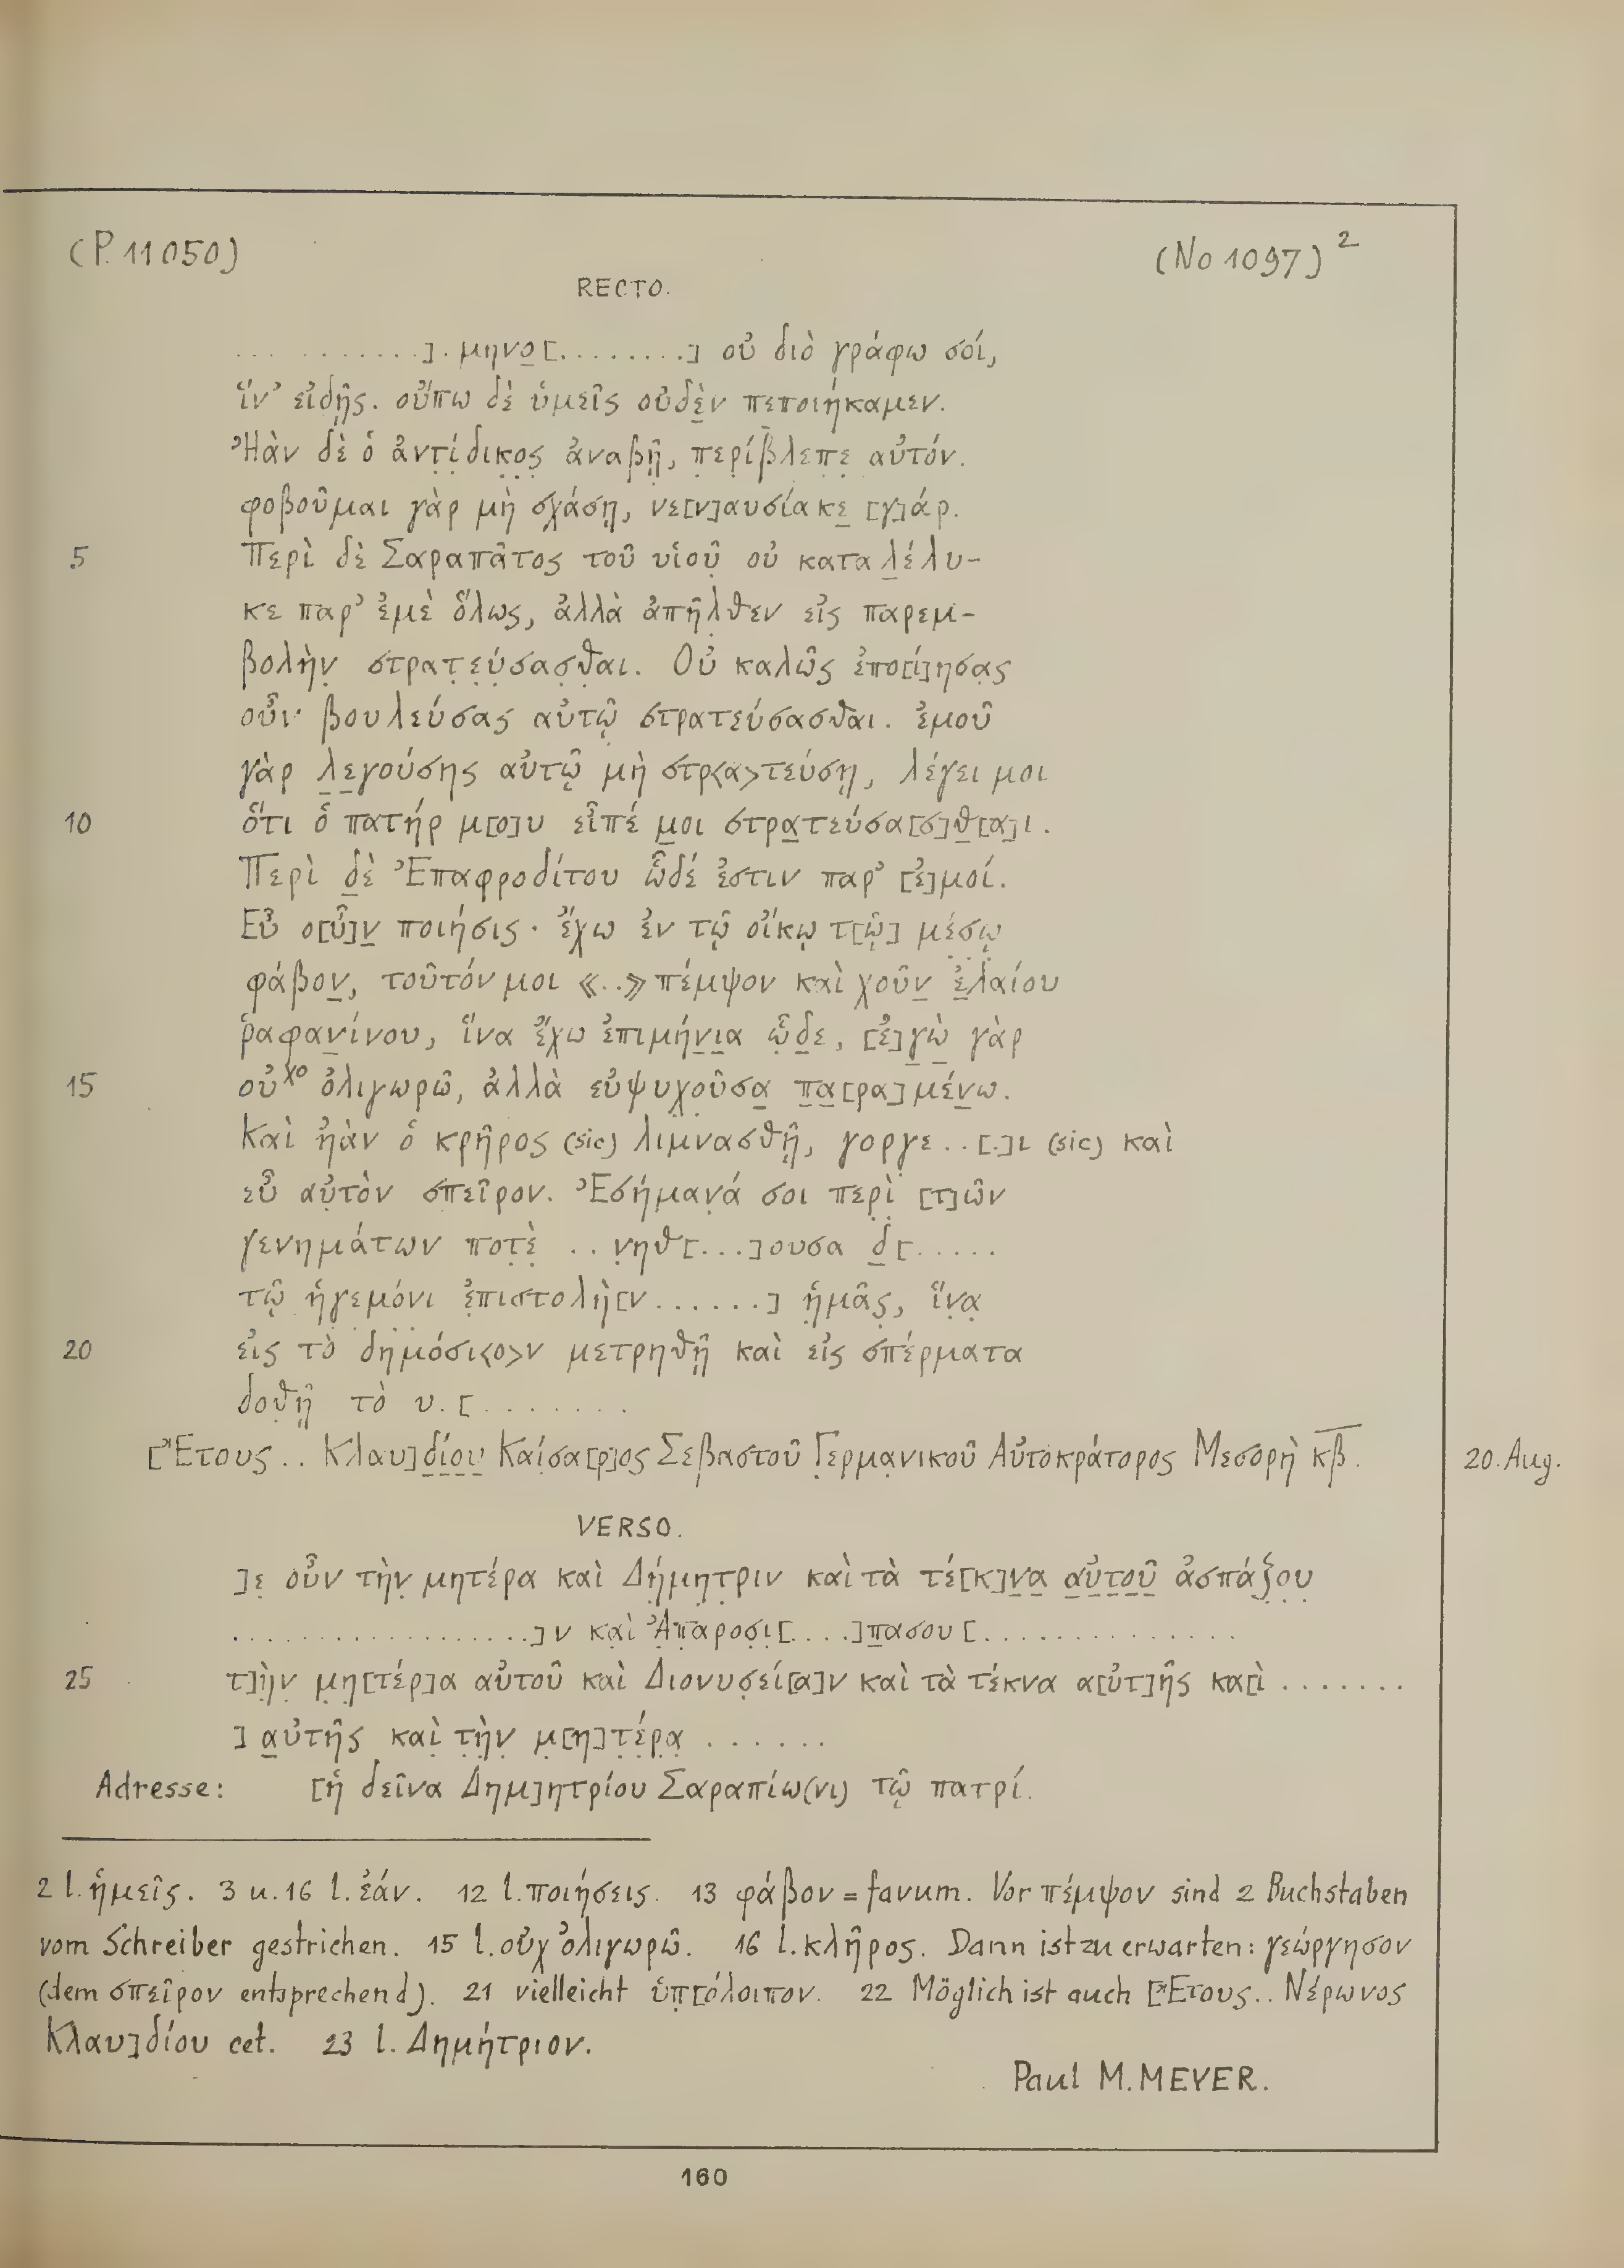 (P. 11050)
(No 1097)²
RECTO.
... .........]. μηνο̣[........] οὐ διὸ γράφω σοί,
ἵν’ εἰδῇς. οὔπω δὲ ὑμεῖς οὐδὲ̣ν πεποιήκαμεν.
Ἠὰν δὲ ὁ ἀντ̣ί̣δικ̣ο̣ς̣ ἀναβῇ̣, π̣ε̣ρ̣ίβ̣λ̣επε̣ αὐτόν.
φοβοῦμαι γὰρ μὴ σχάσῃ, νε[ν]αυσίακε̣ [γ]άρ.
5 Περὶ δὲ Σαραπᾶτος τοῦ υἱοῦ̣ οὐ καταλ̣έλυ-
κε παρ’ ἐμὲ ὅλως, ἀλλὰ ἀπῆλ̣θεν εἰς παρεμ-
βολὴν̣ στρατ̣ε̣ύ̣σασ̣θ̣αι. Οὐ καλῶς ἐπο[ί]ησα̣ς
οὖν βουλεύσας αὐτῷ στρατεύσασθαι. ἐμοῦ
γὰρ λ̣ε̣γούσης αὐτῷ μὴ στρ<α>τεύσῃ, λέγει μοι
10 ὅτι ὁ πατήρ μ[ο]υ εἶπέ μ̣οι στρα̣τεύσα[σ]θ̣[α]ι.
Περὶ δ̣ὲ Ἐπαφροδίτου ὧδέ ἐστιν παρ’ [ἐ]μοί.
Εὖ ο[ὖ]ν̣ ποιήσις· ἔχω ἐν τῷ οἴκῳ τ[ῷ] μ̣έ̣σ̣ῳ̣
φάβον̣, τοῦτόν μοι ⟪..⟫ πέμψον καὶ χοῦν̣ ἐ̣λαίου
ῥαφαν̣ίνου, ἵνα ἔχω ἐπιμήν̣ι̣α ὧ̣δ̣ε, [ἐ]γ̣ὼ̣ γὰρ
15 οὐ χο ὀλιγωρῶ, ἀλλὰ εὐψυχ̣ο̣ῦσα̣ π̣α̣[ρα]μέν̣ω.
Καὶ ἠὰν ὁ κρῆρος (sic) λιμνασθῇ, γοργε..[.]ι (sic) καὶ
εὖ αὐ̣τὸν σπεῖρον. Ἐσήμαν̣ά σοι περ̣ὶ̣ [τ]ῶν
γενημάτων ποτ̣ὲ̣ ..ν̣ηθ[...]ουσα δ̣[.....
τῷ ἡγεμ̣ό̣ν̣ι ἐπιστολὴ[ν......] ἡ̣μᾶς̣, ἵν̣α̣
20 εἰς τὸ δημόσι<ο>ν μετρηθῇ καὶ εἰς σπέρματα
δοθ̣ῇ τὸ υ.[.......
[Ἔτους.. Κλαυ]δ̣ί̣ο̣υ̣ Καί̣σα[ρ]ος Σεβαστοῦ Γ̣ερμα̣νικοῦ Αὐτοκράτορος Μεσορὴ κ̅β̅.
20. Aug.
VERSO.
]ε̣ οὖν τὴν̣ μητέρα καὶ Δή̣μη̣τ̣ριν καὶ τὰ τέ[κ]ν̣α̣ α̣ὐ̣τ̣ο̣ῦ̣ ἀσπάζ̣ο̣υ̣
..................]ν κα̣ὶ Ἀ̣π̣αροσ̣ι̣[....]π̣ασου[..............
25 τ]ὴ̣ν̣ μ̣η̣[τέρ]α αὐτοῦ καὶ Διονυσ̣εί[α]ν καὶ τὰ τέκνα α[ὐτ]ῆς κα[ὶ .......
] α̣ὐτῆς κα̣ὶ̣ τ̣ὴ̣ν̣ μ̣[η]τ̣έ̣ρ̣α̣ ......
Adresse: [ἡ δεῖνα Δημ]ητρίου Σαραπίω(νι) τῷ πατρί.
2 l. ἡμεῖς. 3 u. 16 l. ἐάν. 12 l. ποιήσεις. 13 φάβον = favum. Vor πέμψον sind 2 Buchstaben
vom Schreiber gestrichen. 15 l. οὐχ ὀλιγωρῶ. 16 l. κλῆρος. Dann ist zu erwarten: γεώργησον
(dem σπεῖρον entsprechend). 21 vielleicht ὑπ̣[όλοιπον. 22 Möglich ist auch [Ἔτους.. Νέρωνος
Κλαυ]δίου cet. 23 l. Δημήτριον.
Paul M. MEYER.
160